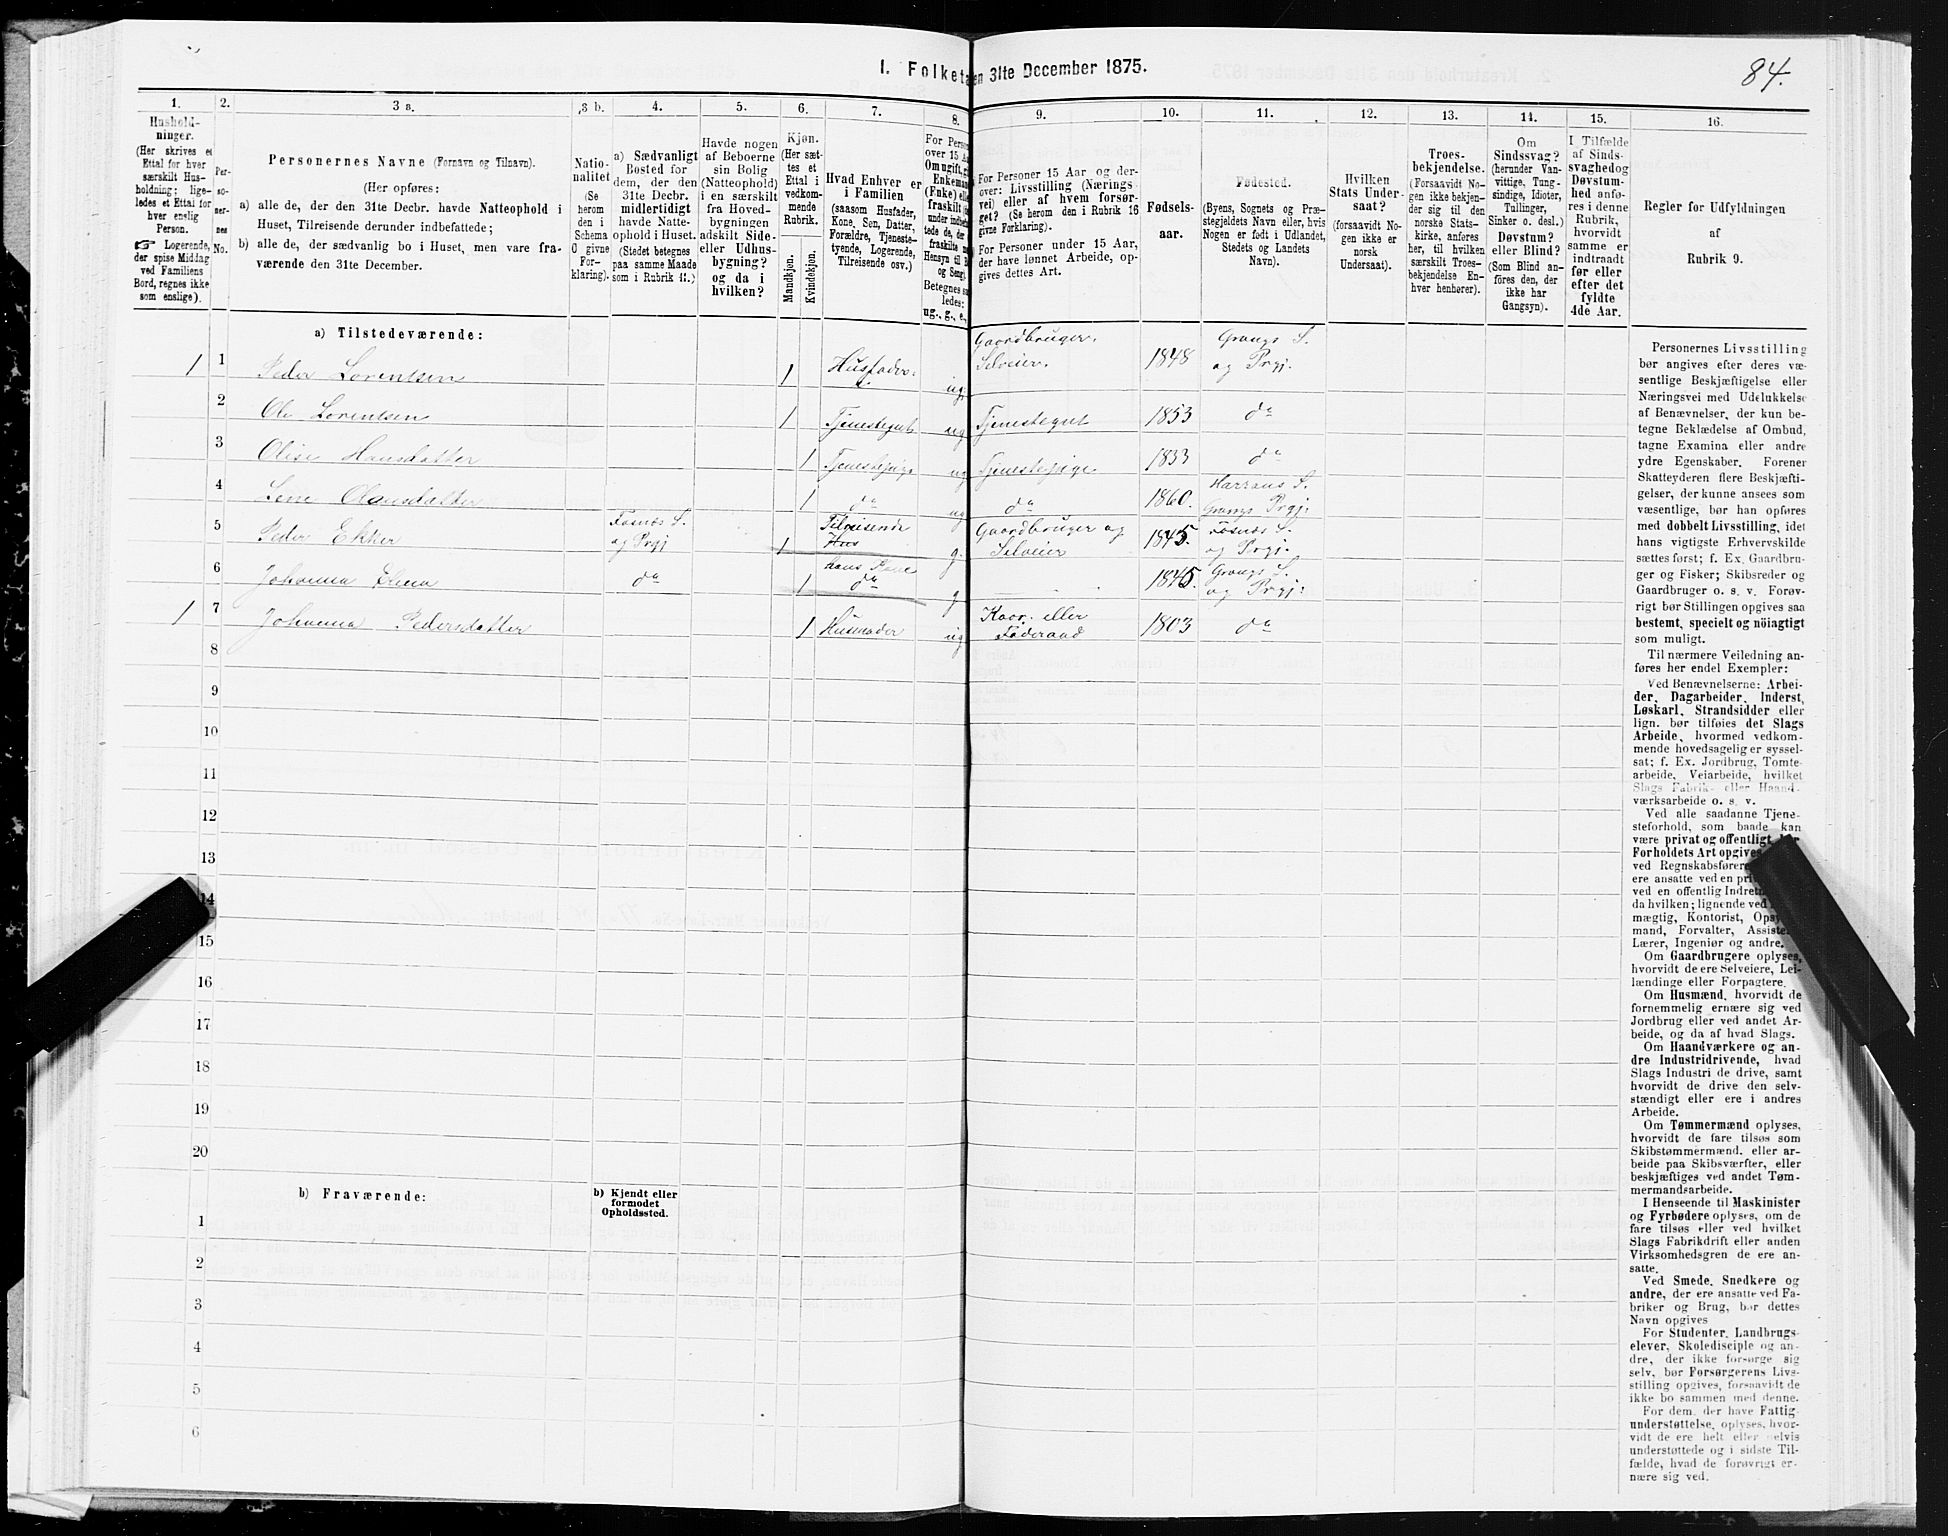 1. Folketa en 31te December 1875.
84.
1.
2.
3 a.
3 b.
4.
5.
6.
7.
8.
9.
10.
11.
12.
13.
14.
15.
16.
Hushold-
ninger.
(Her skrives et
Ettal for hver
særskilt Hus-
holdning; lige-
ledes et Ettal for
hver enslig
Person.
☞ Logerende,
der spise Middag
ved Familiens
Bord, regnes ikke
som enslige).
Per-
so-
ner-
nes
No.
Personernes Navne (Fornavn og Tilnavn).
(Her opføres:
a) alle de, der den 31te Decbr. havde Natteophold i
Huset, Tilreisende derunder indbefattede;
b) alle de, der sædvanlig bo i Huset, men vare fra-
værende den 31te December.
Natio-
nalitet
(Se
herom
den i
Schema
6 givne
For-
klaring).
a) Sædvanligt
Bosted for
dem, der den
31te Decbr.
midlertidigt
havde Natte-
ophold i Huset.
(Stedet betegnes
paa samme Maade
som i Rubrik 11.)
Havde nogen
af Beboerne
sin Bolig
(Natteophold)
i en særskilt
fra Hoved-
bygningen
adskilt Side-
eller Udhus-
bygning?
og da i
hvilken?
Kjøn.
(Her sæt-
tes et
Ettal i
vedkom-
mende
Rubrik.
Mandkjøn.
Kvindekjøn.
Hvad Enhver er
i Familien
(saasom Husfader,
Kone, Søn, Datter,
Forældre, Tjeneste-
tyende, Logerende,
Tilreisende osv.)
For Pers
over 15 A
Om ugift, gi
Enkema
(Enke) ell
fraskilt
under indbe
tede de, der
fraskilte
Hensyn til B
og Seng).
Betegnes sa
ledes:
ug., g., e.,
For Personer 15 Aar og der-
over: Livsstilling (Nærings-
vei) eller af hvem forsør-
get? (Se herom den i Rubrik 16
givne Forklaring).
For Personer under 15 Aar,
der have lønnet Arbeide, op-
gives dettes Art.
Fødsels-
aar.
Fødested.
(Byens, Sognets og Præ-
stegjeldets Navn eller, hvis
Nogen er født i Udlandet,
Stedets og Landets
Navn).
Hvilken
Stats Under-
saat?
(forsaavidt No-
gen ikke er
norsk
Undersaat).
Troes-
bekjendelse.
(Forsaavidt No-
gen ikke bekjen-
der sig til den
norske Stats-
kirke, anføres
her, til hvilken
særskilt Troes-
bekjendelse En-
hver henhører).
Om
Sindssvag?
(herunder Van-
vittige, Tung-
sindige, Idioter,
Tullinger,
Sinker o. desl.)
Døvstum?
eller Blind?
(Som Blind an-
føres den, der
ikke har
Gangsyn).
I Tilfælde
af Sinds-
svaghed og
Døvstum-
hed anfø-
res i denne
Rubrik,
hvorvidt
samme er
indtraadt
før eller
efter det
fyldte
4de Aar.
Regler for Udfyldningen
af
Rubrik 9.
a) Tilstedeværende:
1 1 Peder Lorentsen 1 Husfader. ug. Gaardbruger. Selveier. 1848 Grongs S. og Prgj.
2 Ole Lorentsen 1 Tjenestegut ug Tjenestegut 1853 do
3 Olise Hansdatter 1 Tjenestepige ug Tjenestepige 1833 do
4 Lene Olausdatter 1 do ug do 1860. Harrans S. Grongs Prgj:
5 Peder Ekker Fosnæs S. og Prgj 1 Tilreisende Hus g. Gaardbruger og Selveier 1845. Fosnæs S. og Prgj.
6 Johanna Elina do 1 hans Kone do g. 1845. Grongs S. og Prgj:
1 7 Johanna Pedersdatter 1 Husmoder ug Kaar. eller Føderaad 1803 do
8
9
10
11
12
13
14
15
16
17
18
19
20
b) Fraværende:
b) Kjendt eller
formodet
Opholdssted.
1
2
3
4
5
6
Personernes Livsstilling
bør angives efter deres væ-
sentlige Beskjæftigelse eller
Næringsvei med Udelukkelse
af Benævnelser, der kun be-
tegne Beklædelse af Ombud,
tagne Examina eller andre
ydre Egenskaber. Forener
Skatteyderen flere Beskjæfti-
gelser, der kunne ansees som
væsentlige, bør han opføres
med dobbelt Livsstilling, idet
hans vigtigste Erhvervskilde
sættes først; f. Ex. Gaardbru-
ger og Fisker; Skibsreder og
Gaardbruger o. s. v. Forøv-
rigt bør Stillingen opgives saa
bestemt, specielt og nöiagtigt
som muligt.
Til nærmere Veiledning an-
føres her endel Exempler:
Ved Benævnelserne: Arbei-
der, Dagarbeider, Inderst,
Løskarl, Strandsidder eller
lign. bør tilføies det Slags
Arbeide, hvormed vedkom-
mende hovedsagelig er syssel-
sat; f. Ex. Jordbrug, Tomte-
arbeide, Veiarbeide, hvilket
Slags Fabrik- eller Haand-
værksarbeide o. s. v.
Ved alle saadanne Tjene-
steforhold, som baade kan
være privat og offentligt, bør
Forholdets Art opgives
ved Regnskabsføre
ere ansatte ved en pri
ved en offentlig Indret
da hvilken; lignende ved
mægtig, Kontorist, Opsy
mand, Forvalter, Assiste
Lærer, Ingeniør og andre.
Om Gaardbrugere oplyses,
hvorvidt de ere Selveiere, Lei-
lændinge eller Forpagtere.
Om Husmænd, hvorvidt de
fornemmelig ernære sig ved
Jordbrug eller ved andet Ar-
beide, og da af hvad Slags.
Om Haandværkere og an-
dre Industridrivende, hvad
Slags Industri de drive, samt
hvorvidt de drive den selv-
stændigt eller ere i andres
Arbeide.
Om Tømmermænd oplyses,
hvorvidt de fare tilsøs som
Skibstømmermænd. eller ar-
beide paa Skibsværfter, eller
beskjæftiges ved andet Tøm-
mermandsarbeide.
I Henseende til Maskinister
og Fyrbødere oplyses, om de
fare tilsøs eller ved hvilket
Slags Fabrikdrift eller anden
Virksomhedsgren de ere an-
satte.
Ved Smede, Snedkere og
andre, der ere ansatte ved Fa-
briker og Brug, bør dettes
Navn opgives
For Studenter, Landbrugs-
elever, Skoledisciple og an-
dre, der ikke forsørge sig
selv, bør Forsørgerens Livs-
stilling opgives, forsaavidt de
ikke bo sammen med denne.
For dem, der have Fattig-
understøttelse, oplyses, hvor-
vidt de ere helt eller delvis
understøttede og i sidste Til-
fælde, hvad de forøvrigt er-
nære sig ved.